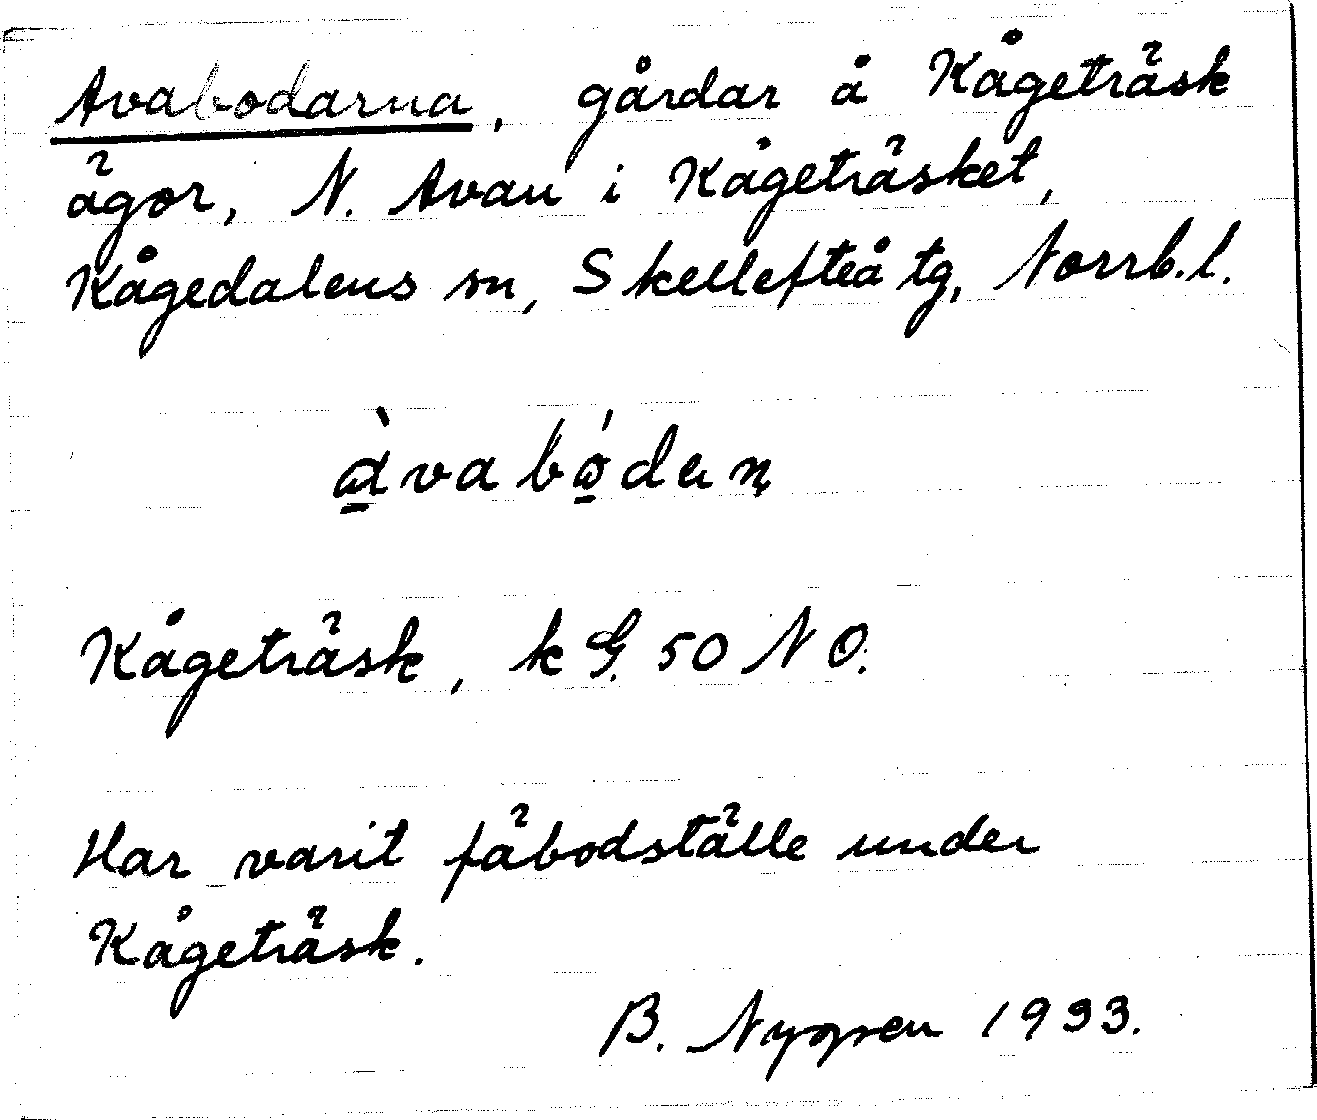 Avabodarna, gårdar å Kågeträsk
ägor, N. Avan i Kågeträsket,
Kågedalens sn, Skellefteå tg, Norrb.l.
àvabódaṇ
Kågeträsk, k G. 50 NO.
Har varit fäbodställe under
Kågeträsk.
B. Nygren 1933.